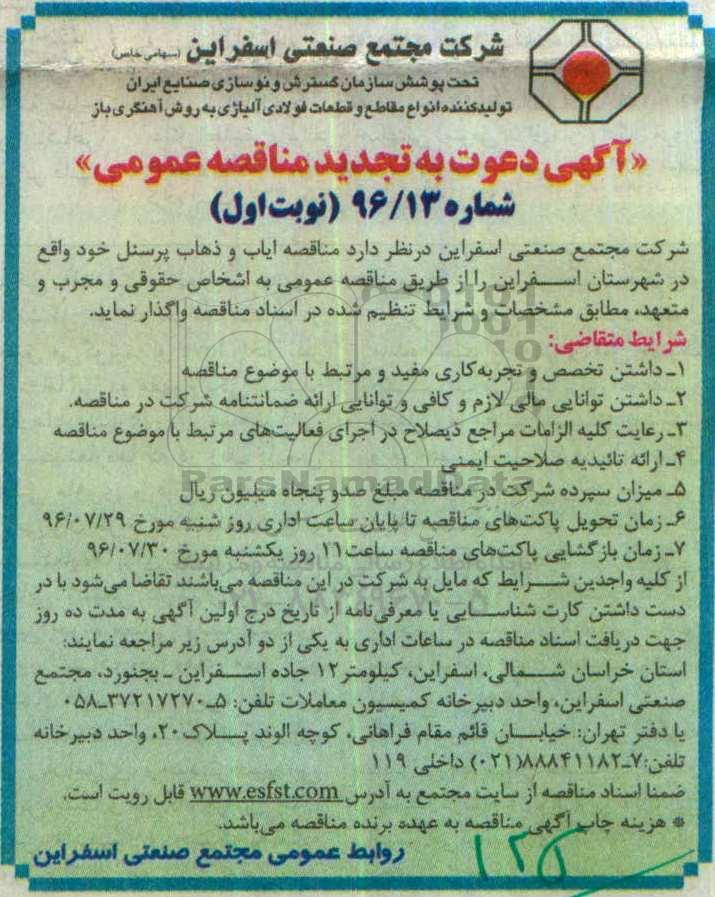 شرکت مجتمع صنعتی اسفراین (سهامی خاص)
تحت پوشش سازمان گسترش و نوسازی صنایع ایران
تولیدکننده انواع مقاطع و قطعات فولادی آلیاژی به روش آهنگری باز
«آگهی دعوت به تجدید مناقصه عمومی»
شماره ۹۶/۱۳ (نوبت اول)
شرکت مجتمع صنعتی اسفراین درنظر دارد مناقصه ایاب و ذهاب پرسنل خود واقع
در شهرستان اسفراین را از طریق مناقصه عمومی به اشخاص حقوقی و مجرب و
متعهد، مطابق مشخصات و شرایط تنظیم شده در اسناد مناقصه واگذار نماید.
شرایط متقاضی:
۱ـ داشتن تخصص و تجربه کاری مفید و مرتبط با موضوع مناقصه
۲ـ داشتن توانایی مالی لازم و کافی و توانایی ارائه ضمانتنامه شرکت در مناقصه.
۳ـ رعایت کلیه الزامات مراجع ذیصلاح در اجرای فعالیت‌های مرتبط با موضوع مناقصه
۴ـ ارائه تائیدیه صلاحیت ایمنی
ParsNamadData
۵ـ میزان سپرده شرکت در مناقصه مبلغ صدو پنجاه میلیون ریال
۶ـ زمان تحویل پاکت‌های مناقصه تا پایان ساعت اداری روز شنبه مورخ ۹۶/۰۷/۲۹
۷ـ زمان بازگشایی پاکت‌های مناقصه ساعت ۱۱ روز یکشنبه مورخ ۹۶/۰۷/۳۰
از کلیه واجدین شرایط که مایل به شرکت در این مناقصه می‌باشند تقاضا می‌شود با در
دست داشتن کارت شناسایی یا معرفی‌نامه از تاریخ درج اولین آگهی به مدت ده روز
جهت دریافت اسناد مناقصه در ساعات اداری به یکی از دو آدرس زیر مراجعه نمایند:
استان خراسان شمالی، اسفراین، کیلومتر ۱۲ جاده اسفراین ـ بجنورد، مجتمع
صنعتی اسفراین، واحد دبیرخانه کمیسیون معاملات تلفن: ۵ـ۳۷۲۱۷۲۷۰ـ۰۵۸
یا دفتر تهران: خیابان قائم مقام فراهانی، کوچه الوند پلاک ۲۰، واحد دبیرخانه
تلفن: ۷ـ۸۸۸۴۱۱۸۲(۰۲۱) داخلی ۱۱۹
ضمنا اسناد مناقصه از سایت مجتمع به آدرس www.esfst.com قابل رویت است.
* هزینه چاپ آگهی مناقصه به عهده برنده مناقصه می‌باشد.
روابط عمومی مجتمع صنعتی اسفراین